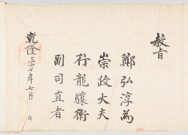 教旨
鄭弘淳為
崇政大夫
行龍驤衛
副司直者
乾隆三十八年七月 日